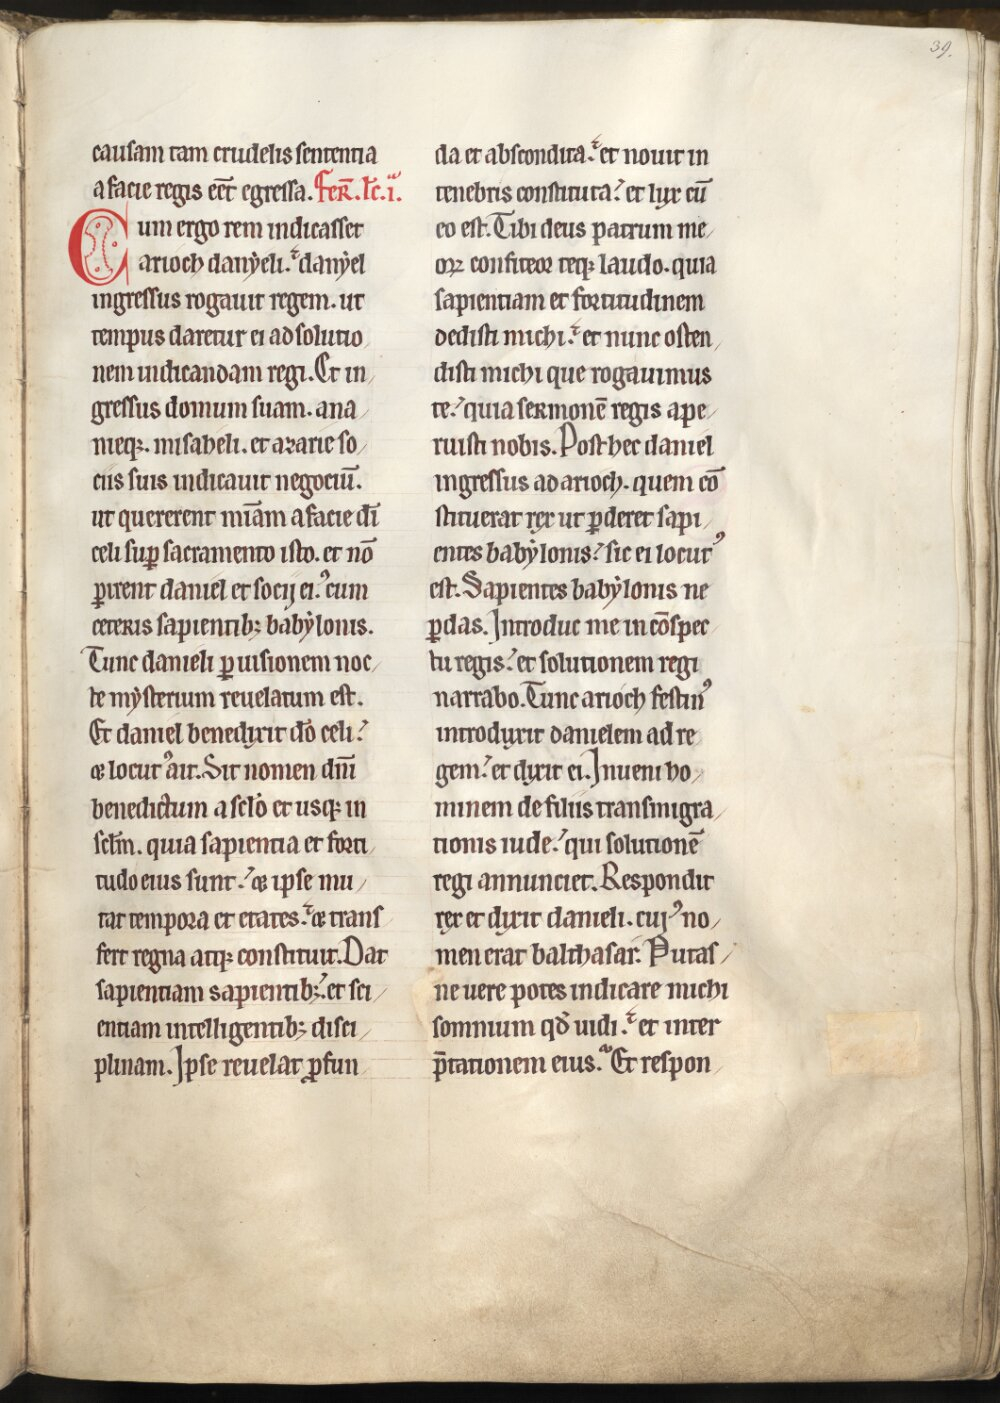 39.
causam tam crudelis sententia
a facie regis eēt egressa. Fer̄. lc̄. i.ᵃ
Cum ergo rem indicasset
arioch danẏeli. danẏel
ingressus rogauit regem. ut
tempus daretur ei ad solutio
nem indicandam regi. Et in/
gressus domum suam. ana/
nieq;. misaheli. et azarie so/
ciis suis indicauit negociū.
ut quererent mīam a facie dī
celi suꝑ sacramento isto. et nō
ꝑirent daniel et socij eiꝰ. cum
ceteris sapientib; babẏlonis.
Tunc danieli ꝑ uisionem noc/
te mẏsterium reuelatum est.
Et daniel benedixit dō celi?
⁊ locutꝰ ait. Sit nomen dn̄i
benedictum a sclo et usq; in
sclm̄. quia sapientia et forti
tudo eius sunt? ⁊ ipse mu/
tat tempora et etates. ⁊ trans
fert regna atq; constituit. Dat
sapientiam sapientib;. et sci/
entiam intelligentib; disci/
plinam. Ipse reuelat ꝓfun/
da et abscondita. et nouit in
tenebris constituta? et lux cū
eo est. Tibi deus patrum me/
oꝝ confiteor teq; laudo. quia
sapientiam et fortitudinem
dedisti michi. et nunc osten/
disti michi que rogauimus
te? quia sermonē regis ape/
ruisti nobis. Post hec daniel
ingressus ad arioch. quem cō
stituerat rex ut ꝑderet sapi/
entes babẏlonis? sic ei locutꝰ
est. Sapientes babẏlonis ne
ꝑdas. Introduc me in cōspec/
tu regis? et solutionem regi
narrabo. Tunc arioch festinꝰ
introduxit danielem ad re/
gem? et dixit ei. Inueni ho/
minem de filiis transmigra/
tionis iude? qui solutionē
regi annunciet. Respondit
rex et dixit danieli. cuiꝰ no/
men erat balthasar. Putas/
ne uere potes indicare michi
somnium qd̄ uidi. et inter
p̄tationem eius. Et respon/